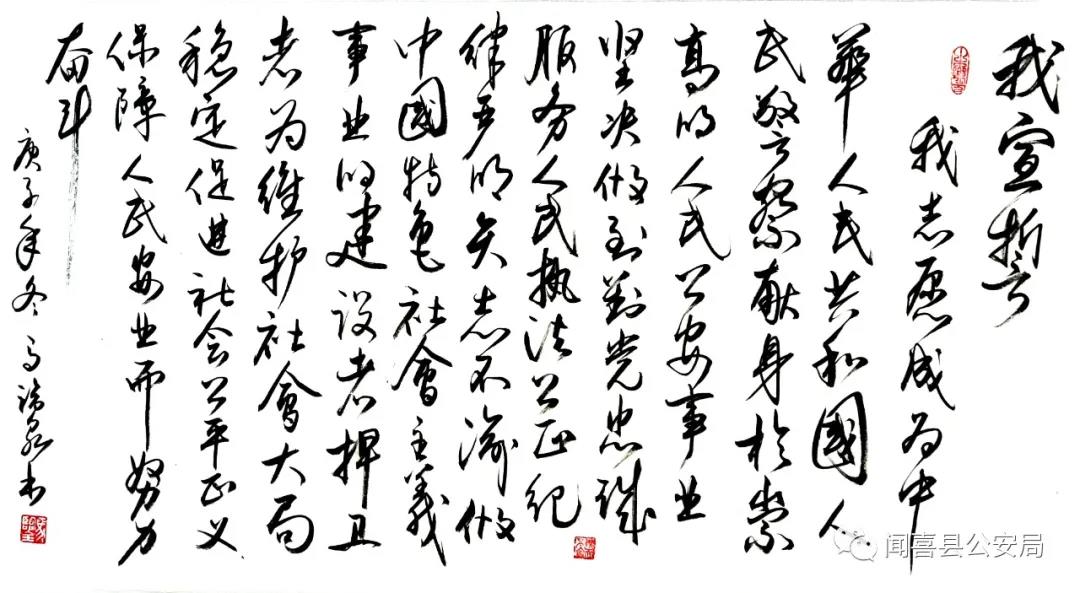 我宣誓
我志愿成为中
華人民共和國人
民警察献身於崇
高的人民公安事业
坚决做到對党忠诚
服务人民执法公正纪
律严明矢志不渝做
中國特色社會主義
事业的建设者捍卫
者为维护社會大局
稳定促进社会公平正义
保障人民安业而努力
奋斗
庚子年冬
闻喜县公安局